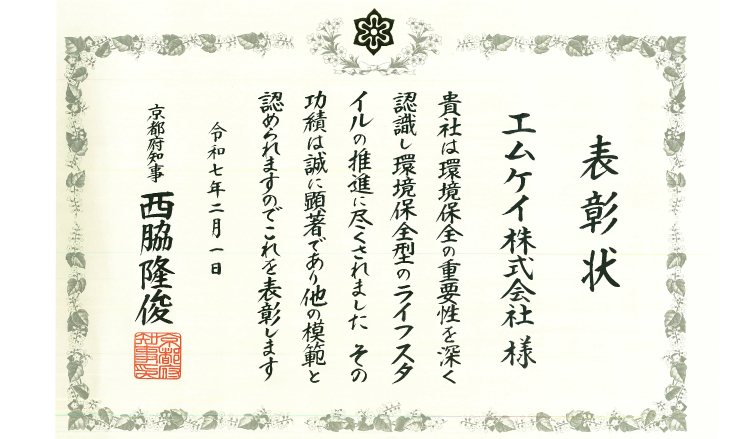 表彰状
エムケイ株式会社 様
貴社は環境保全の重要性を深く
認識し環境保全型のライフスタ
イルの推進に尽くされました その
功績は誠に顕著であり他の模範と
認められますのでこれを表彰します
令和七年二月一日
京都府知事 西脇隆俊
京都府知事之印